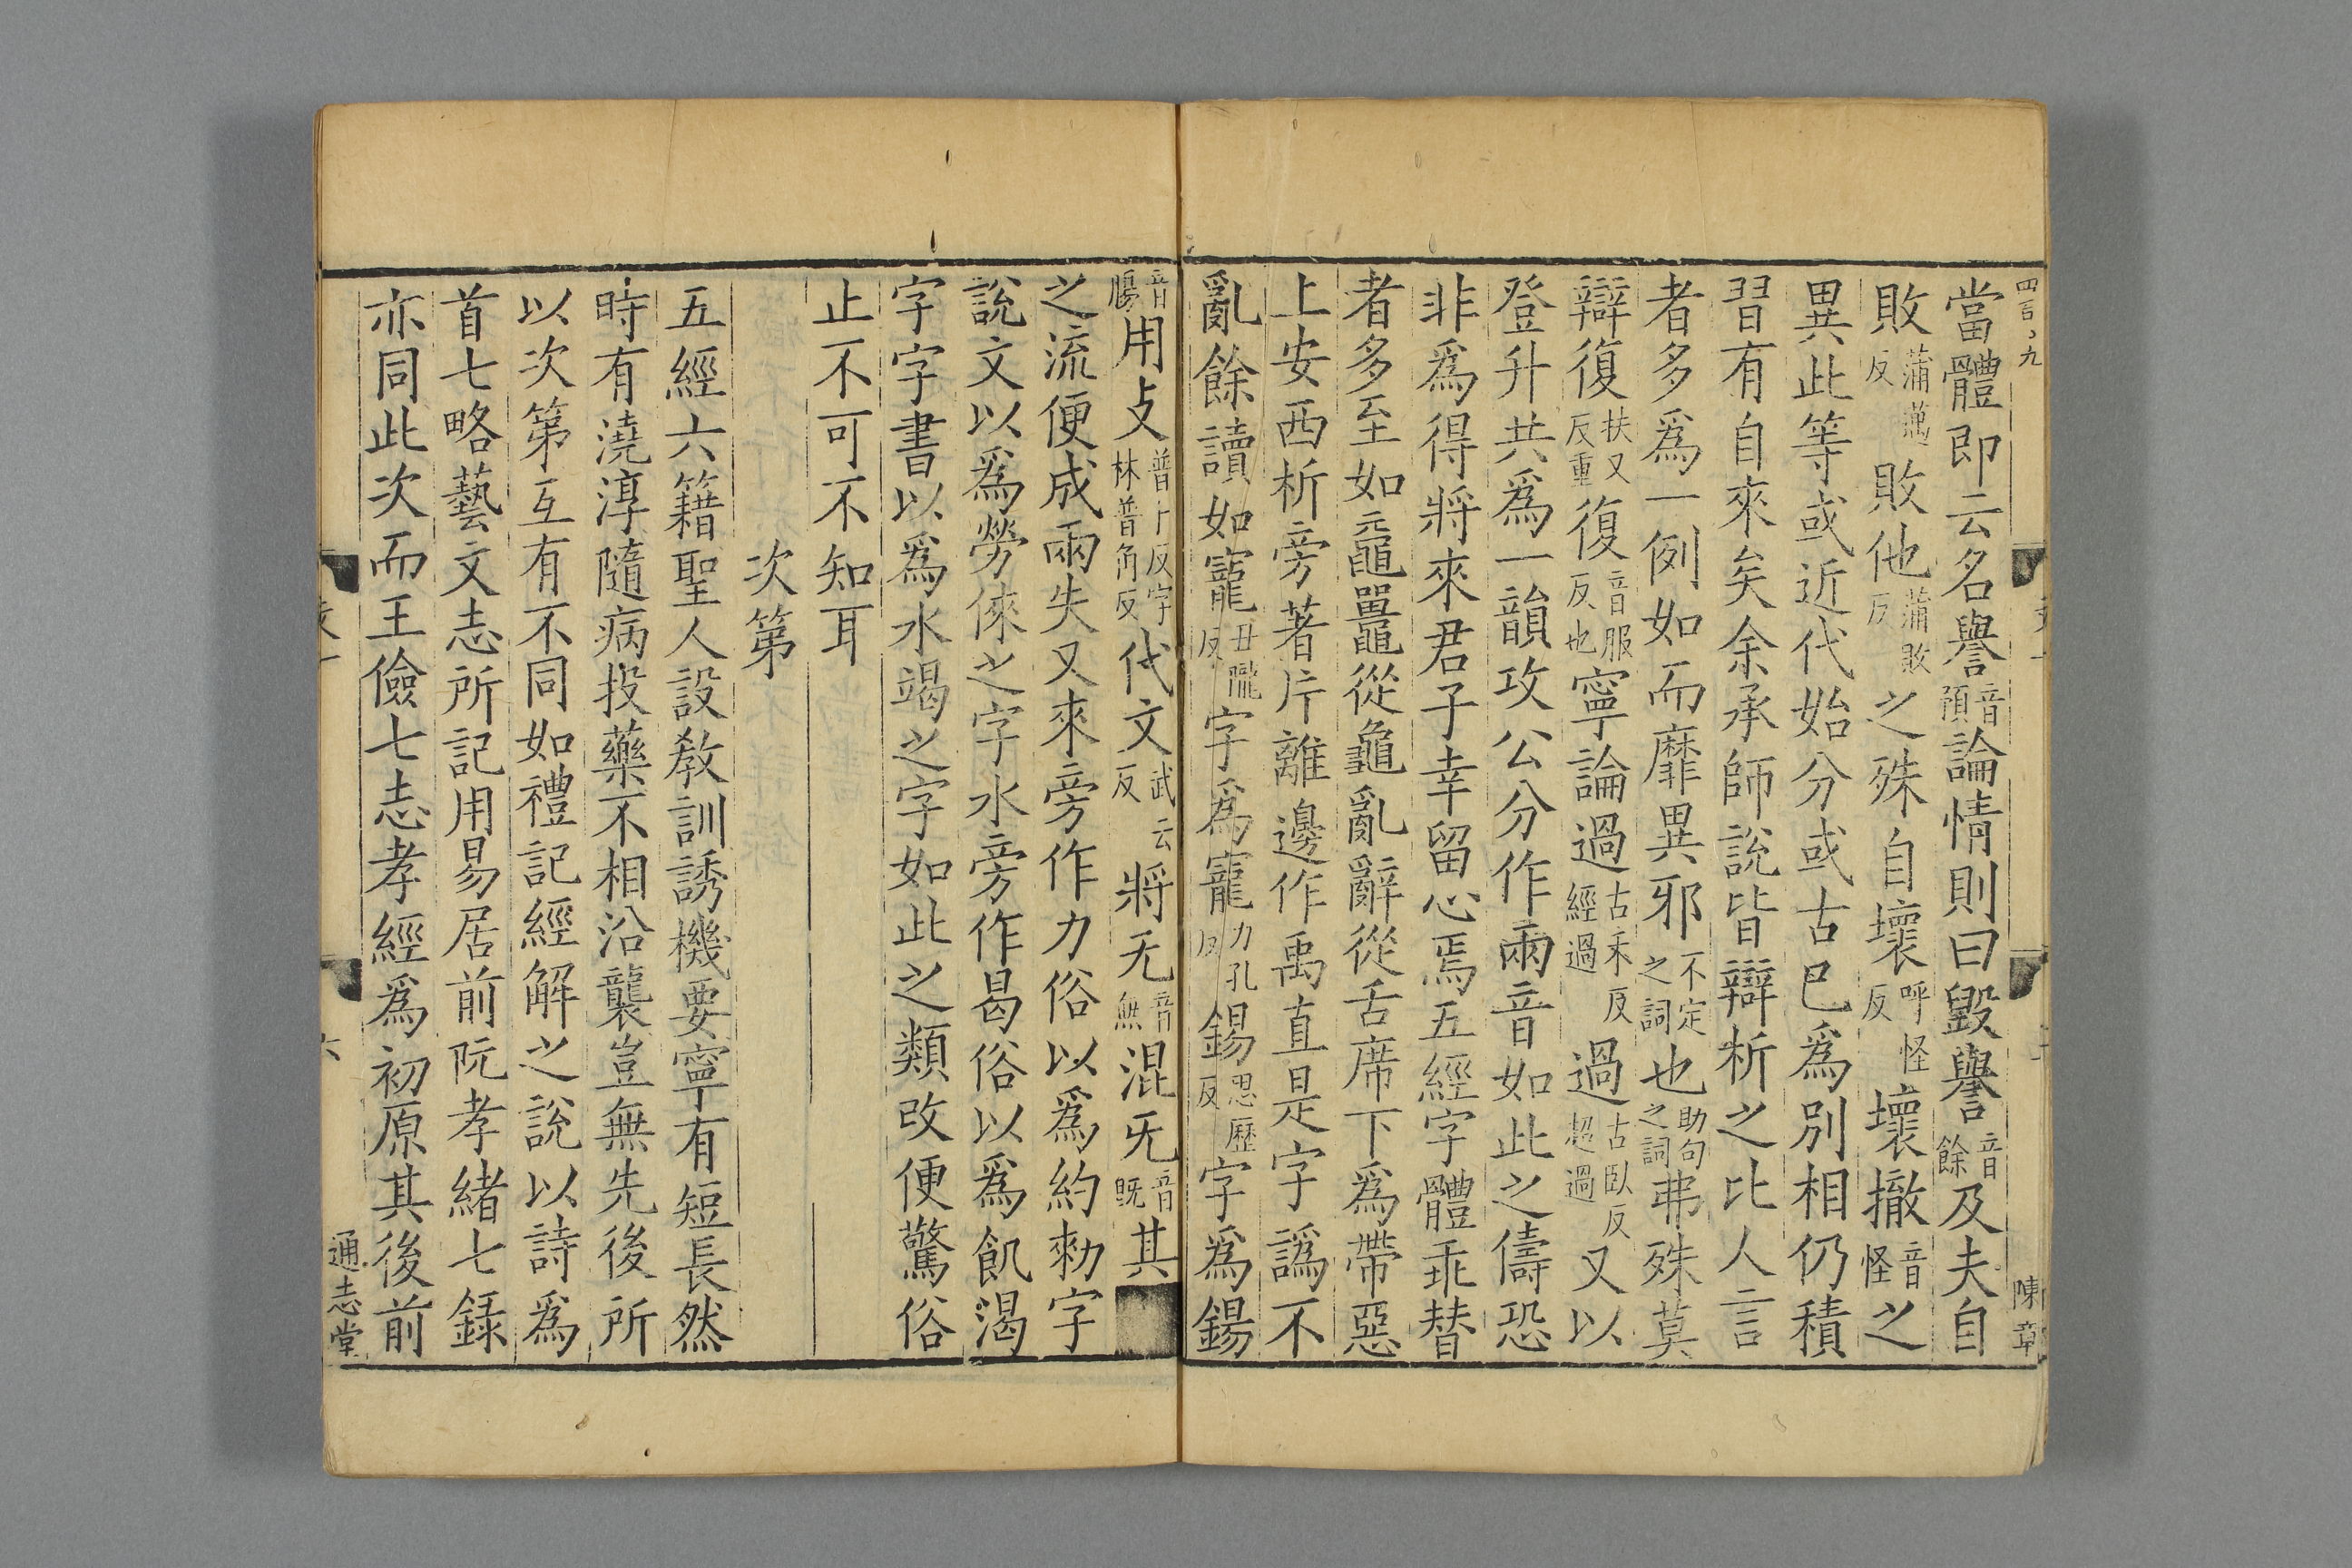 四言〻九
陳章
當體即云名譽音預論情則曰毀譽音餘及夫自
敗蒲邁反敗他蒲敗反之殊自壞呼怪反壞撤音怪之
異此等或近代始分或古巳爲別相仍積
習有自來矣余承師說皆辯析之比人言
者多爲一例如而靡異邪不定之詞也助句之詞弗殊莫
辯復扶又反重復音服反也寧論過古禾反經過過古臥反超過又以
登升共爲一韻攻公分作兩音如此之儔恐
非爲得將來君子幸留心焉五經字體乖替
者多至如黿鼉從龜亂辭從舌席下爲帶惡
上安西析旁著片離邊作禹直是字譌不
亂餘讀如寵丑隴反字爲寵力孔反錫思歷反字爲鍚
音腸用攴普卜反字林普角反代文武云反將无音無混旡音既其
之流便成兩失又來旁作力俗以爲約勑字
說文以爲勞倈之字水旁作曷俗以爲飢渴
字字書以爲水竭之字如此之類改便驚俗
止不可不知耳
次第
五經六籍聖人設教訓誘機要寧有短長然
時有澆淳隨病投藥不相沿襲豈無先後所
以次第互有不同如禮記經解之說以詩爲
首七略藝文志所記用易居前阮孝緒七錄
亦同此次而王儉七志孝經爲初原其後前
六
通志堂